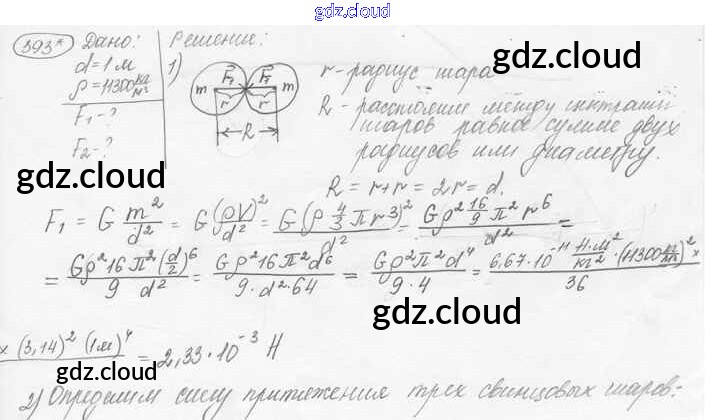 gdz.cloud
393* Дано: Решение:
gdz.cloud
d = 1 м
1)
ρ = 11300 кг/м³
F₁ - ?
F₂ - ?
m F₁ F₁ m
r r
R
r - радиус шара
R - расстояние между центрами
шаров равное сумме двух
радиусов или диаметру.
gdz.cloud
gdz.cloud
R = r + r = 2r = d.
F₁ = G m²/d² = G (ρV)²/d² = G(ρ 4/3 π r³)²/d² = Gρ² 16/9 π² r⁶/d² =
= Gρ² 16 π² (d/2)⁶/9 d² = Gρ² 16 π² d⁶/9 · d² · 64 = Gρ² π² d⁴/9 · 4 = 6,67 · 10⁻¹¹ Н·м²/кг² · (11300 кг/м³)² ×/36
gdz.cloud
× (3,14)² (1м)⁴ = 2,33 · 10⁻³ Н
gdz.cloud
2) Определим силу притяжения трех свинцовых шаров: